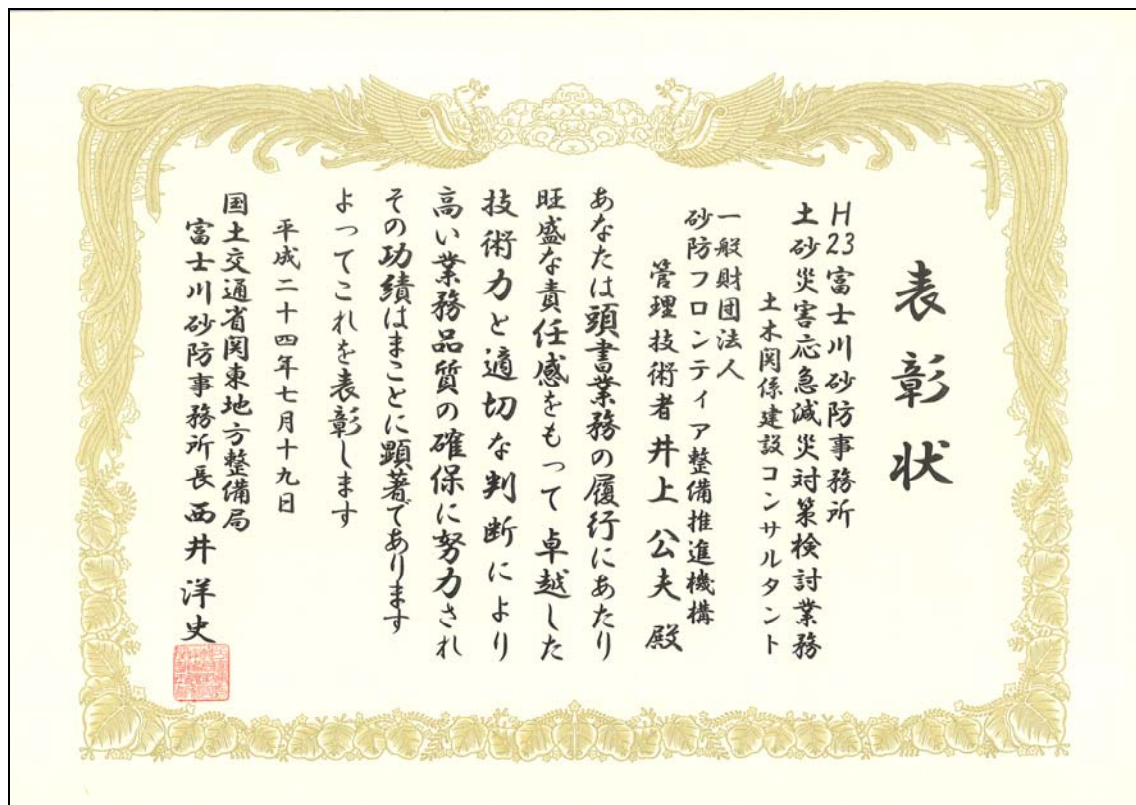 表彰状
H23富士川砂防事務所
土砂災害応急減災対策検討業務
土木関係建設コンサルタント
一般財団法人
砂防フロンティア整備推進機構
管理技術者 井上公夫 殿
あなたは頭書業務の履行にあたり
旺盛な責任感をもって卓越した
技術力と適切な判断により
高い業務品質の確保に努力され
その功績はまことに顕著であります
よってこれを表彰します
平成二十四年七月十九日
国土交通省関東地方整備局
富士川砂防事務所長 西井洋史